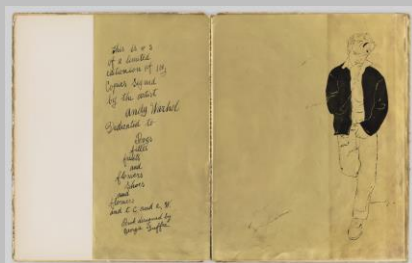 this is # 3
of a limited
edition of 100
Copies Signed
by the artist
Andy Warhol
Dedicated to
Boys
filles
fruits
and
flowers
Shoes
and
flowers
and t. C. and e, W.
Book designed by
George